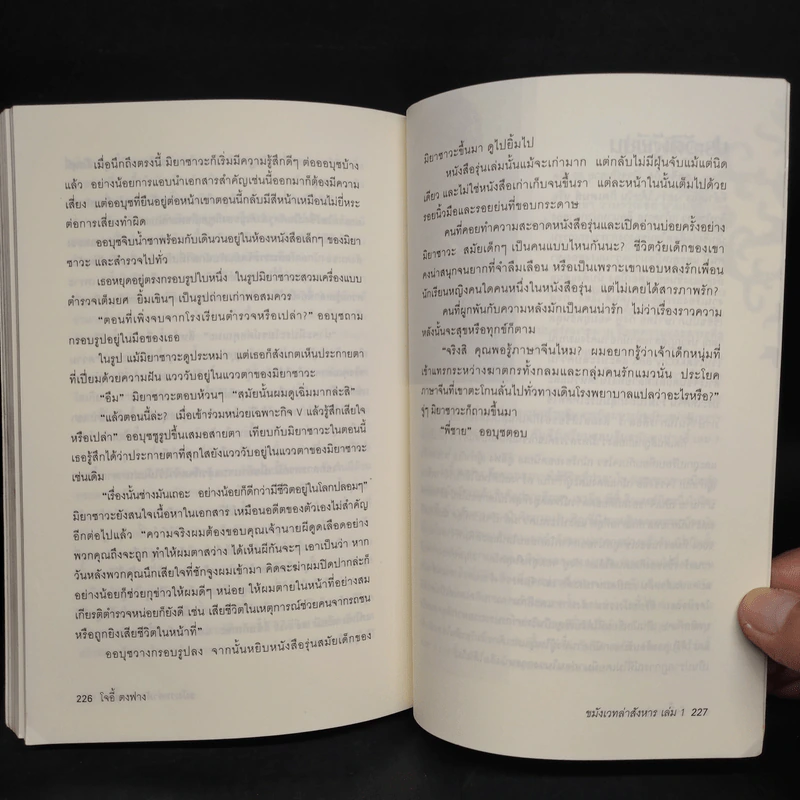 เมื่อนึกถึงตรงนี้ มิยาซาวะก็เริ่มมีความรู้สึกดีๆ ต่อออบุซบ้าง
แล้ว อย่างน้อยการแอบนำเอกสารสำคัญเช่นนี้ออกมาก็ต้องมีความ
เสี่ยง แต่ออบุซที่ยืนอยู่ต่อหน้าเขาตอนนี้กลับมีสีหน้าเหมือนไม่ยี่หระ
ต่อการเสี่ยงทำผิด
ออบุซจิบน้ำชาพร้อมกับเดินวนอยู่ในห้องหนังสือเล็กๆ ของมิยา
ซาวะ และสำรวจไปทั่ว
เธอหยุดอยู่ตรงกรอบรูปใบหนึ่ง ในรูปมิยาซาวะสวมเครื่องแบบ
ตำรวจเต็มยศ ยิ้มเขินๆ เป็นรูปถ่ายเก่าพอสมควร
“ตอนที่เพิ่งจบจากโรงเรียนตำรวจหรือเปล่า?” ออบุซถาม
กรอบรูปอยู่ในมือของเธอ
ในรูป แม้มิยาซาวะดูประหม่า แต่เธอก็สังเกตเห็นประกายตา
ที่เปี่ยมด้วยความฝัน แวววับอยู่ในแววตาของมิยาซาวะ
“อืม” มิยาซาวะตอบห้วนๆ “สมัยนั้นผมดูเฉิ่มมากล่ะสิ”
“แล้วตอนนี้ล่ะ? เมื่อเข้าร่วมหน่วยเฉพาะกิจ V แล้วรู้สึกเสียใจ
หรือเปล่า” ออบุซชูรูปขึ้นเสมอสายตา เทียบกับมิยาซาวะในตอนนี้
เธอรู้สึกได้ว่าประกายตาที่สุกใสยังแวววับอยู่ในแววตาของมิยาซาวะ
เช่นเดิม
“เรื่องนั้นช่างมันเถอะ อย่างน้อยก็ดีกว่ามีชีวิตอยู่ในโลกปลอมๆ”
มิยาซาวะยังสนใจเนื้อหาในเอกสาร เหมือนอดีตของตัวเองไม่สำคัญ
อีกต่อไปแล้ว “ความจริงผมต้องขอบคุณเจ้านายผีดูดเลือดอย่าง
พวกคุณถึงจะถูก ทำให้ผมตาสว่าง ได้เห็นผีกันจะๆ เอาเป็นว่า หาก
วันหลังพวกคุณนึกเสียใจที่ชักจูงผมเข้ามา คิดจะฆ่าผมปิดปากล่ะก็
อย่างน้อยก็ช่วยกุข่าวให้ผมดีๆ หน่อย ให้ผมตายในหน้าที่อย่างสม
เกียรติตำรวจหน่อยก็ยังดี เช่น เสียชีวิตในเหตุการณ์ช่วยคนจากรถชน
หรือถูกยิงเสียชีวิตในหน้าที่”
ออบุซวางกรอบรูปลง จากนั้นหยิบหนังสือรุ่นสมัยเด็กของ
226 โจอี้ ตงฟาง
มิยาซาวะขึ้นมา ดูไปยิ้มไป
หนังสือรุ่นเล่มนั้นแม้จะเก่ามาก แต่กลับไม่มีฝุ่นจับแม้แต่นิด
เดียว และไม่ใช่หนังสือเก่าเก็บจนขึ้นรา แต่ละหน้าในนั้นเต็มไปด้วย
รอยนิ้วมือและรอยย่นที่ขอบกระดาษ
คนที่คอยทำความสะอาดหนังสือรุ่นและเปิดอ่านบ่อยครั้งอย่าง
มิยาซาวะ สมัยเด็กๆ เป็นคนแบบไหนกันนะ? ชีวิตวัยเด็กของเขา
คงน่าสนุกจนยากที่จำลืมเลือน หรือเป็นเพราะเขาแอบหลงรักเพื่อน
นักเรียนหญิงคนใดคนหนึ่งในหนังสือรุ่น แต่ไม่เคยได้สารภาพรัก?
คนที่ผูกพันกับความหลังมักเป็นคนน่ารัก ไม่ว่าเรื่องราวความ
หลังนั้นจะสุขหรือทุกข์ก็ตาม
“จริงสิ คุณพอรู้ภาษาจีนไหม? ผมอยากรู้ว่าเจ้าเด็กหนุ่มที่
เข้าแทรกระหว่างฆาตกรทั้งกลมและกลุ่มคนรักแมวนั่น ประโยค
ภาษาจีนที่เขาตะโกนลั่นไปทั่วทางเดินโรงพยาบาลแปลว่าอะไรหรือ?”
จู่ๆ มิยาซาวะก็ถามขึ้นมา
“พี่ชาย” ออบุซตอบ
ขมังเวทล่าสังหาร เล่ม 1 227